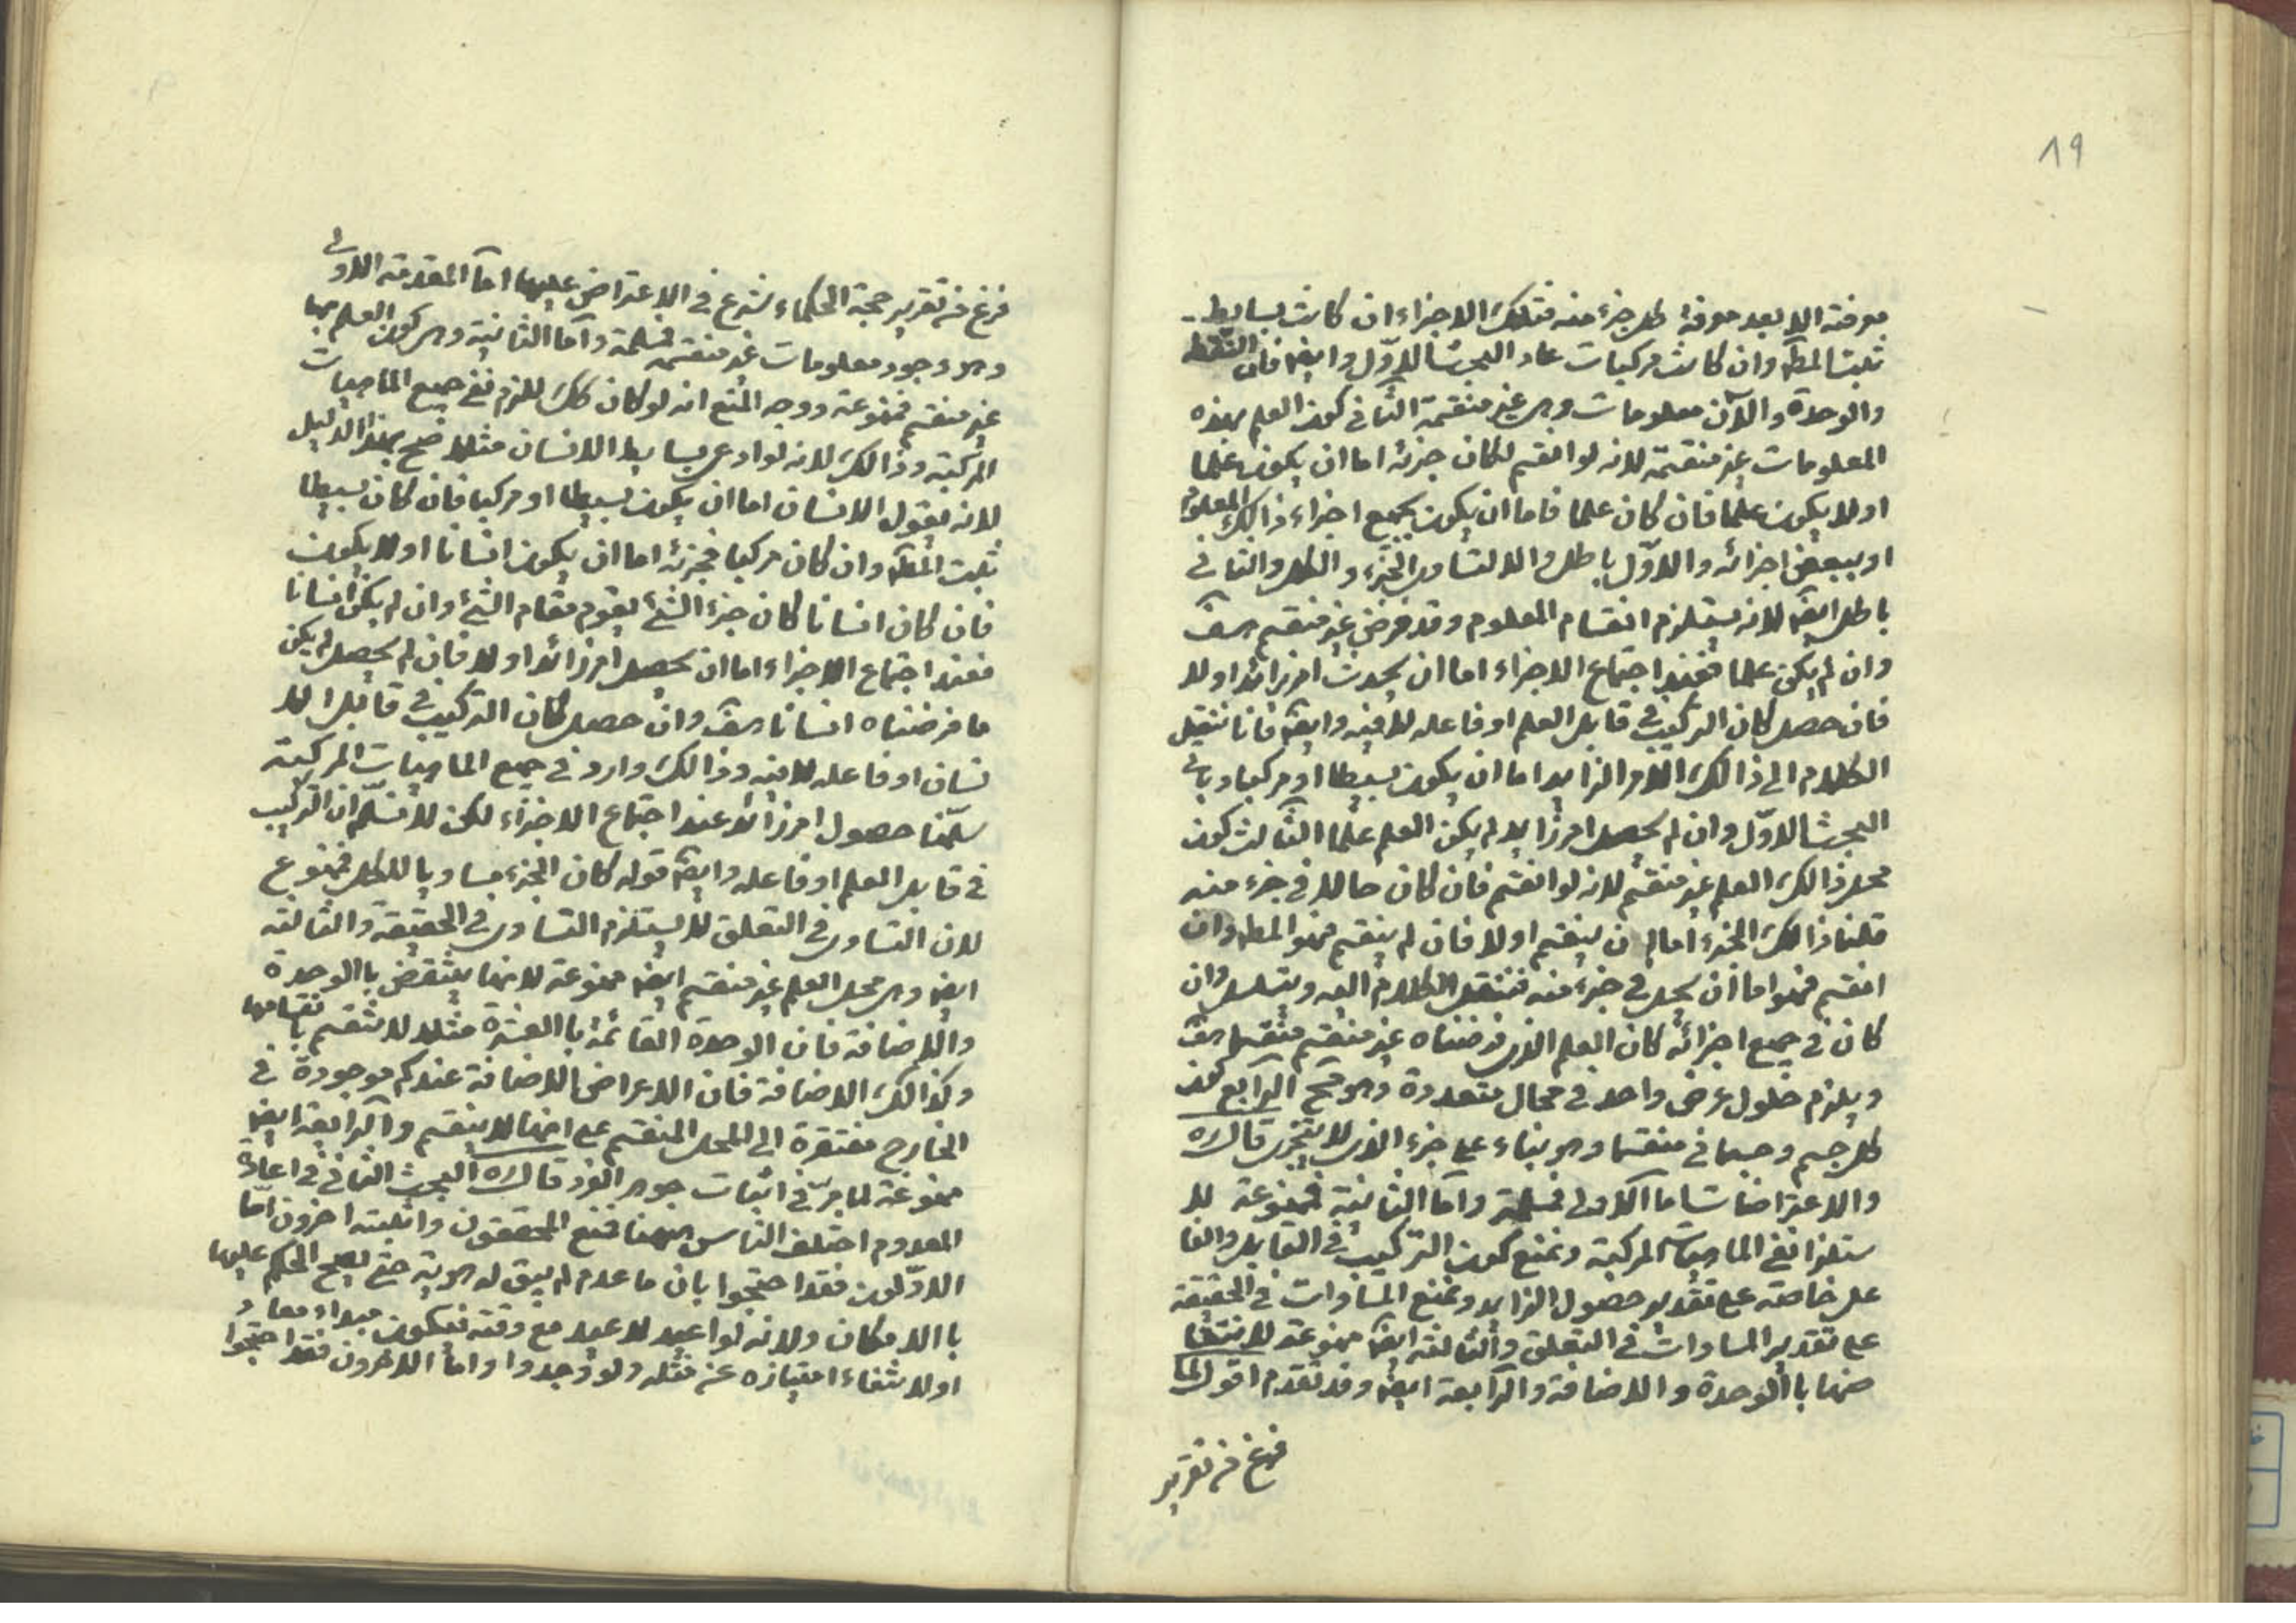 19
معرفته الا بعد معرفة كل جزء منه فتلك الاجزاء ان كانت بسايط
ثبت المط وان كانت مركبات عاد البحث الاوّل وايضا فان النقطة
والوحدة والآن معلومات وهى غير منقسمة الثانى كون العلم بهذه
المعلومات غير منقسمة لانه لو انقسم لكان جزئه اما ان يكون علما
او لا يكون علما فان كان علما فاما ان يكون بجميع اجزاء ذالك المعلوم
او ببعض اجزائه والاوّل باطل والا لتساوى الجزء والكل والثانى
باطل ايضا لانه يستلزم انقسام المعلوم وقد فرض غير منقسم هف
وان لم يكن علما فعند اجتماع الاجزاء اما ان يحدث امر زائد اولا
فان حصل كان التركيب فى قابل العلم او فاعله لا فيه وايضا فانا ننقل
الكلام الى ذالك الامر الزايد اما ان يكون بسيطا او مركبا وياتى
البحث الاوّل وان لم يحصل امر زايد لم يكن العلم علما الثالث كون
محل ذالك العلم غير منقسم لانه لو انقسم فان كان حالا فى جزء منه
قلنا ذالك الجزء اما ان ينقسم اولا فان لم ينقسم فهو المط وان
انقسم فهو اما ان يحل فى جزء منه فننقل الكلام اليه ويتسلسل وان
كان فى جميع اجزائه كان العلم الذى فرضناه غير منقسم منقسما هف
ويلزم حلول عرض واحد فى محال متعددة وهو مح الرابع كون
كل جسم وجسمانى منقسما وهو بناء على جزء الذى لا يتجزى قال ره
والاعتراضات اما الاولى فمسلمة واما الثانية فممنوعة لا
ستلزا نفى الماهيات المركبة ونمنع كون التركيب فى القابل والفا
عل خاصة على تقدير حصول الزايد ونمنع المساوات فى الحقيقة
على تقدير المساوات فى التعلق والثالثة ايضا ممنوعة لانتقا
ضها باالوحدة والاضافة والرابعة ايضا وقد تقدم اقول لما
فرغ من تقرير
فرغ من تقرير حجة الحكماء شرع فى الاعتراض عليها امّا المقدمة الاولى
وهو وجود معلومات غير منقسمة فمسلمة وامّا الثانية وهى كون العلم بها
غير منقسم فممنوعة ووجه المنع انه لو كان كك للزم نفى جميع الماهيات
المركبة وذالك لانه لو ادعى بسايط الانسان مثلا صح بهذا الدليل
لانه يقول الانسان اما ان يكون بسيطا او مركبا فان كان بسيطا
ثبت المط وان كان مركبا فجزئه اما ان يكون انسانا او لا يكون
فان كان انسانا كان جزء الشئ يقوم مقام الشئ وان لم يكن انسانا
فعند اجتماع الاجزاء اما ان يحصل امر زائد اولا فان لم يحصل لم يكن
ما فرضناه انسانا هف وان حصل كان التركيب فى قابل الا
نسان او فاعله لا فيه وذالك وارد فى جميع الماهيات المركبة
سلّمنا حصول امر زائد عند اجتماع الاجزاء لكن لا نسلّم ان التركيب
فى قابل العلم او فاعله وايضا قوله كان الجزء مساويا للكل فممنوع
لان التساوى فى التعلق لا يستلزم التساوى فى الحقيقة والثالثة
ايضا وهى محل العلم غير منقسم ايضا ممنوعة لانها ينتقض باالوحدة
والاضافة فان الوحدة القائمة باالعشرة مثلا لا تنقسم بانقسامها
وكذالك الاضافة فان الاعراض الاضافة عندكم موجودة فى
الخارج مفتقرة الى المحل المنقسم على انها لا ينقسم والرابعة ايضا
ممنوعة لما مرّ فى اثبات جوهر الفرد قال ره البحث الثانى فى اعادة
المعدوم اختلف الناس ههنا فمنع المحققون واثبته اخرون امّا
الاوّلون فقد احتجوا بان ما عدم لم يبق له هوية حتى يصح الحكم عليها
باالامكان ولانه لو اعيد لاعيد مع وقته فيكون مبداء معا و
اولانتفاء امتيازه عن مثله ولو وجدوا واما الاخرون فقد احتجوا